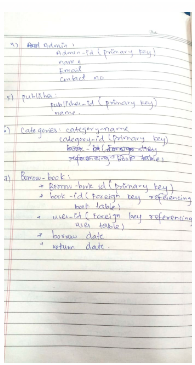 4) Admin :
Admin-id (primary key)
name
Email
contact no
5) publisher
publisher-id (primary key)
name.
6) Categories: category-name
category-id (primary key)
book-id (foreign key
referencing book table)
7) Borrow-book :
→ Borrow-book id (primary key)
→ book-id (Foreign key referencing
book table)
→ user-id (foreign key referencing
user table)
→ borrow date
→ return date.